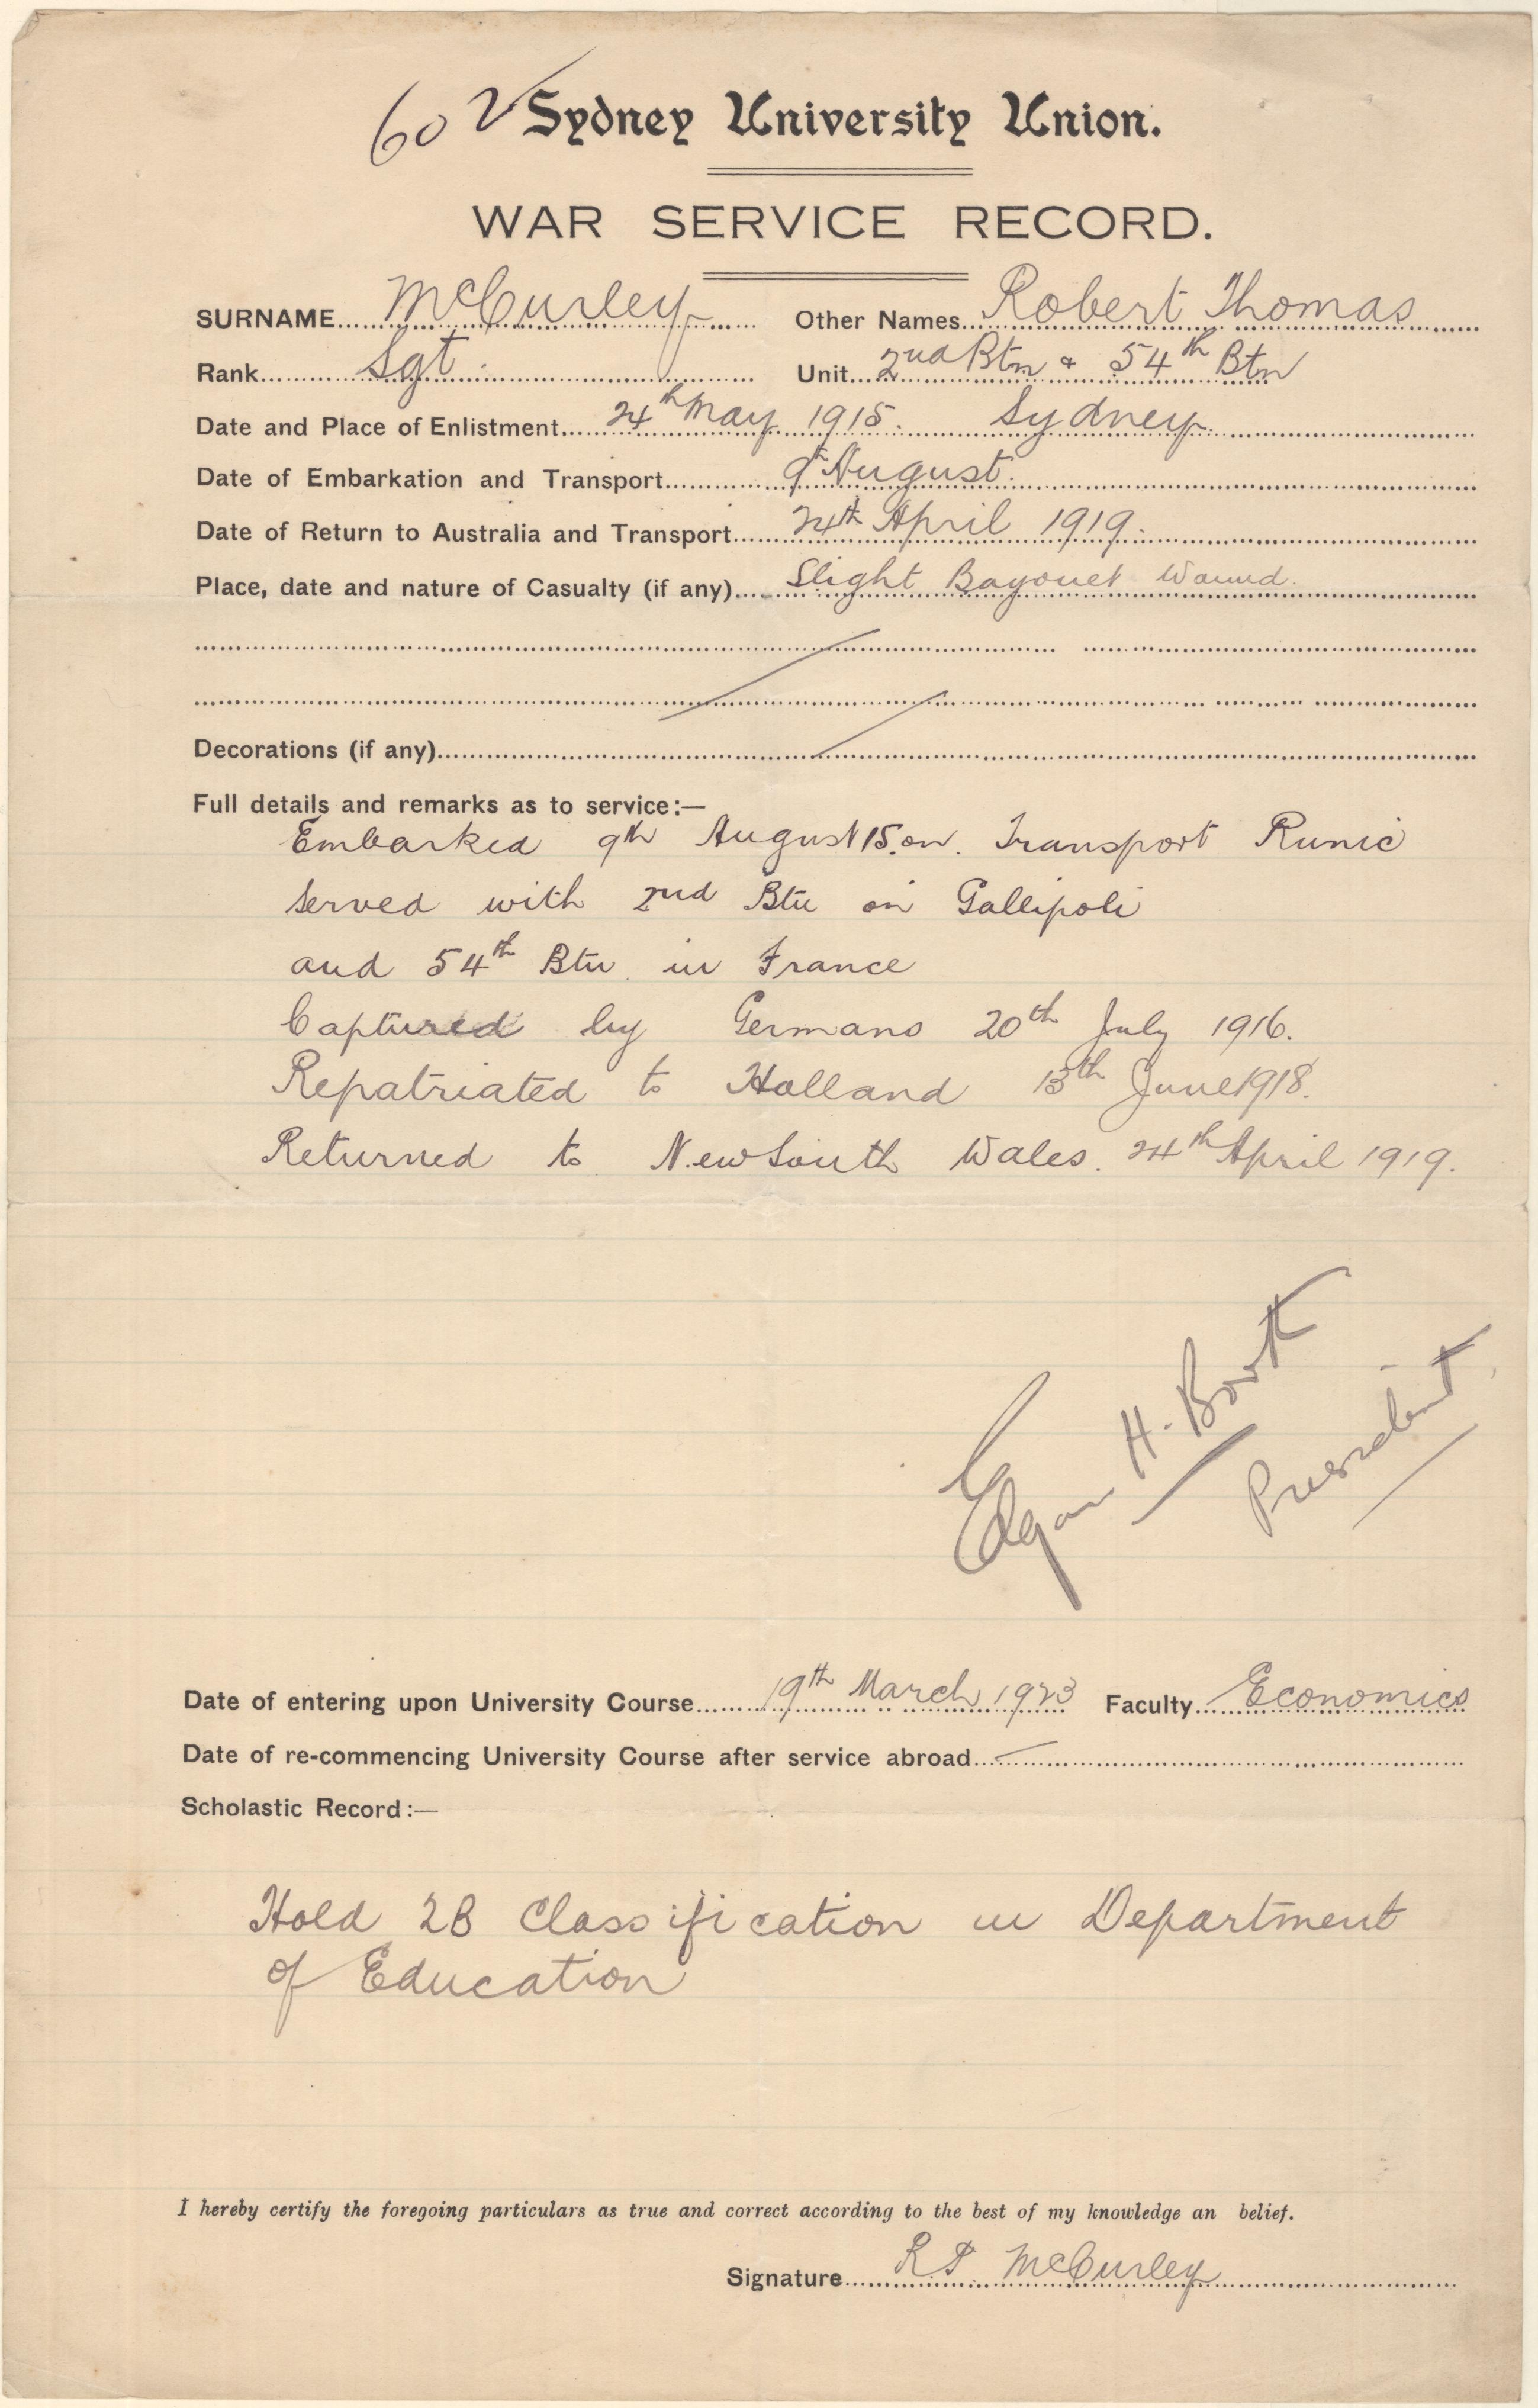 60 Sydney University Union.
WAR SERVICE RECORD.
SURNAME McCurley Other Names Robert Thomas
Rank Sgt. Unit 2nd Btn & 54th Btn
Date and Place of Enlistment 24th May 1915. Sydney.
Date of Embarkation and Transport 9th August.
Date of Return to Australia and Transport 24th April 1919.
Place, date and nature of Casualty (if any) Slight Bayonet Wound.
Decorations (if any)
Full details and remarks as to service:—
Embarked 9th August 15. on. Transport Runic
Served with 2nd Btn on Gallipoli
and 54th Btn in France
Captured by Germans 20th July 1916.
Repatriated to Holland 13th June 1918.
Returned to New South Wales. 24th April 1919.
Edgar H. Booth
President
Date of entering upon University Course 19th March 1923 Faculty Economics
Date of re-commencing University Course after service abroad —
Scholastic Record:—
Hold 2B Classification in Department
of Education
I hereby certify the foregoing particulars as true and correct according to the best of my knowledge an belief.
Signature R T McCurley